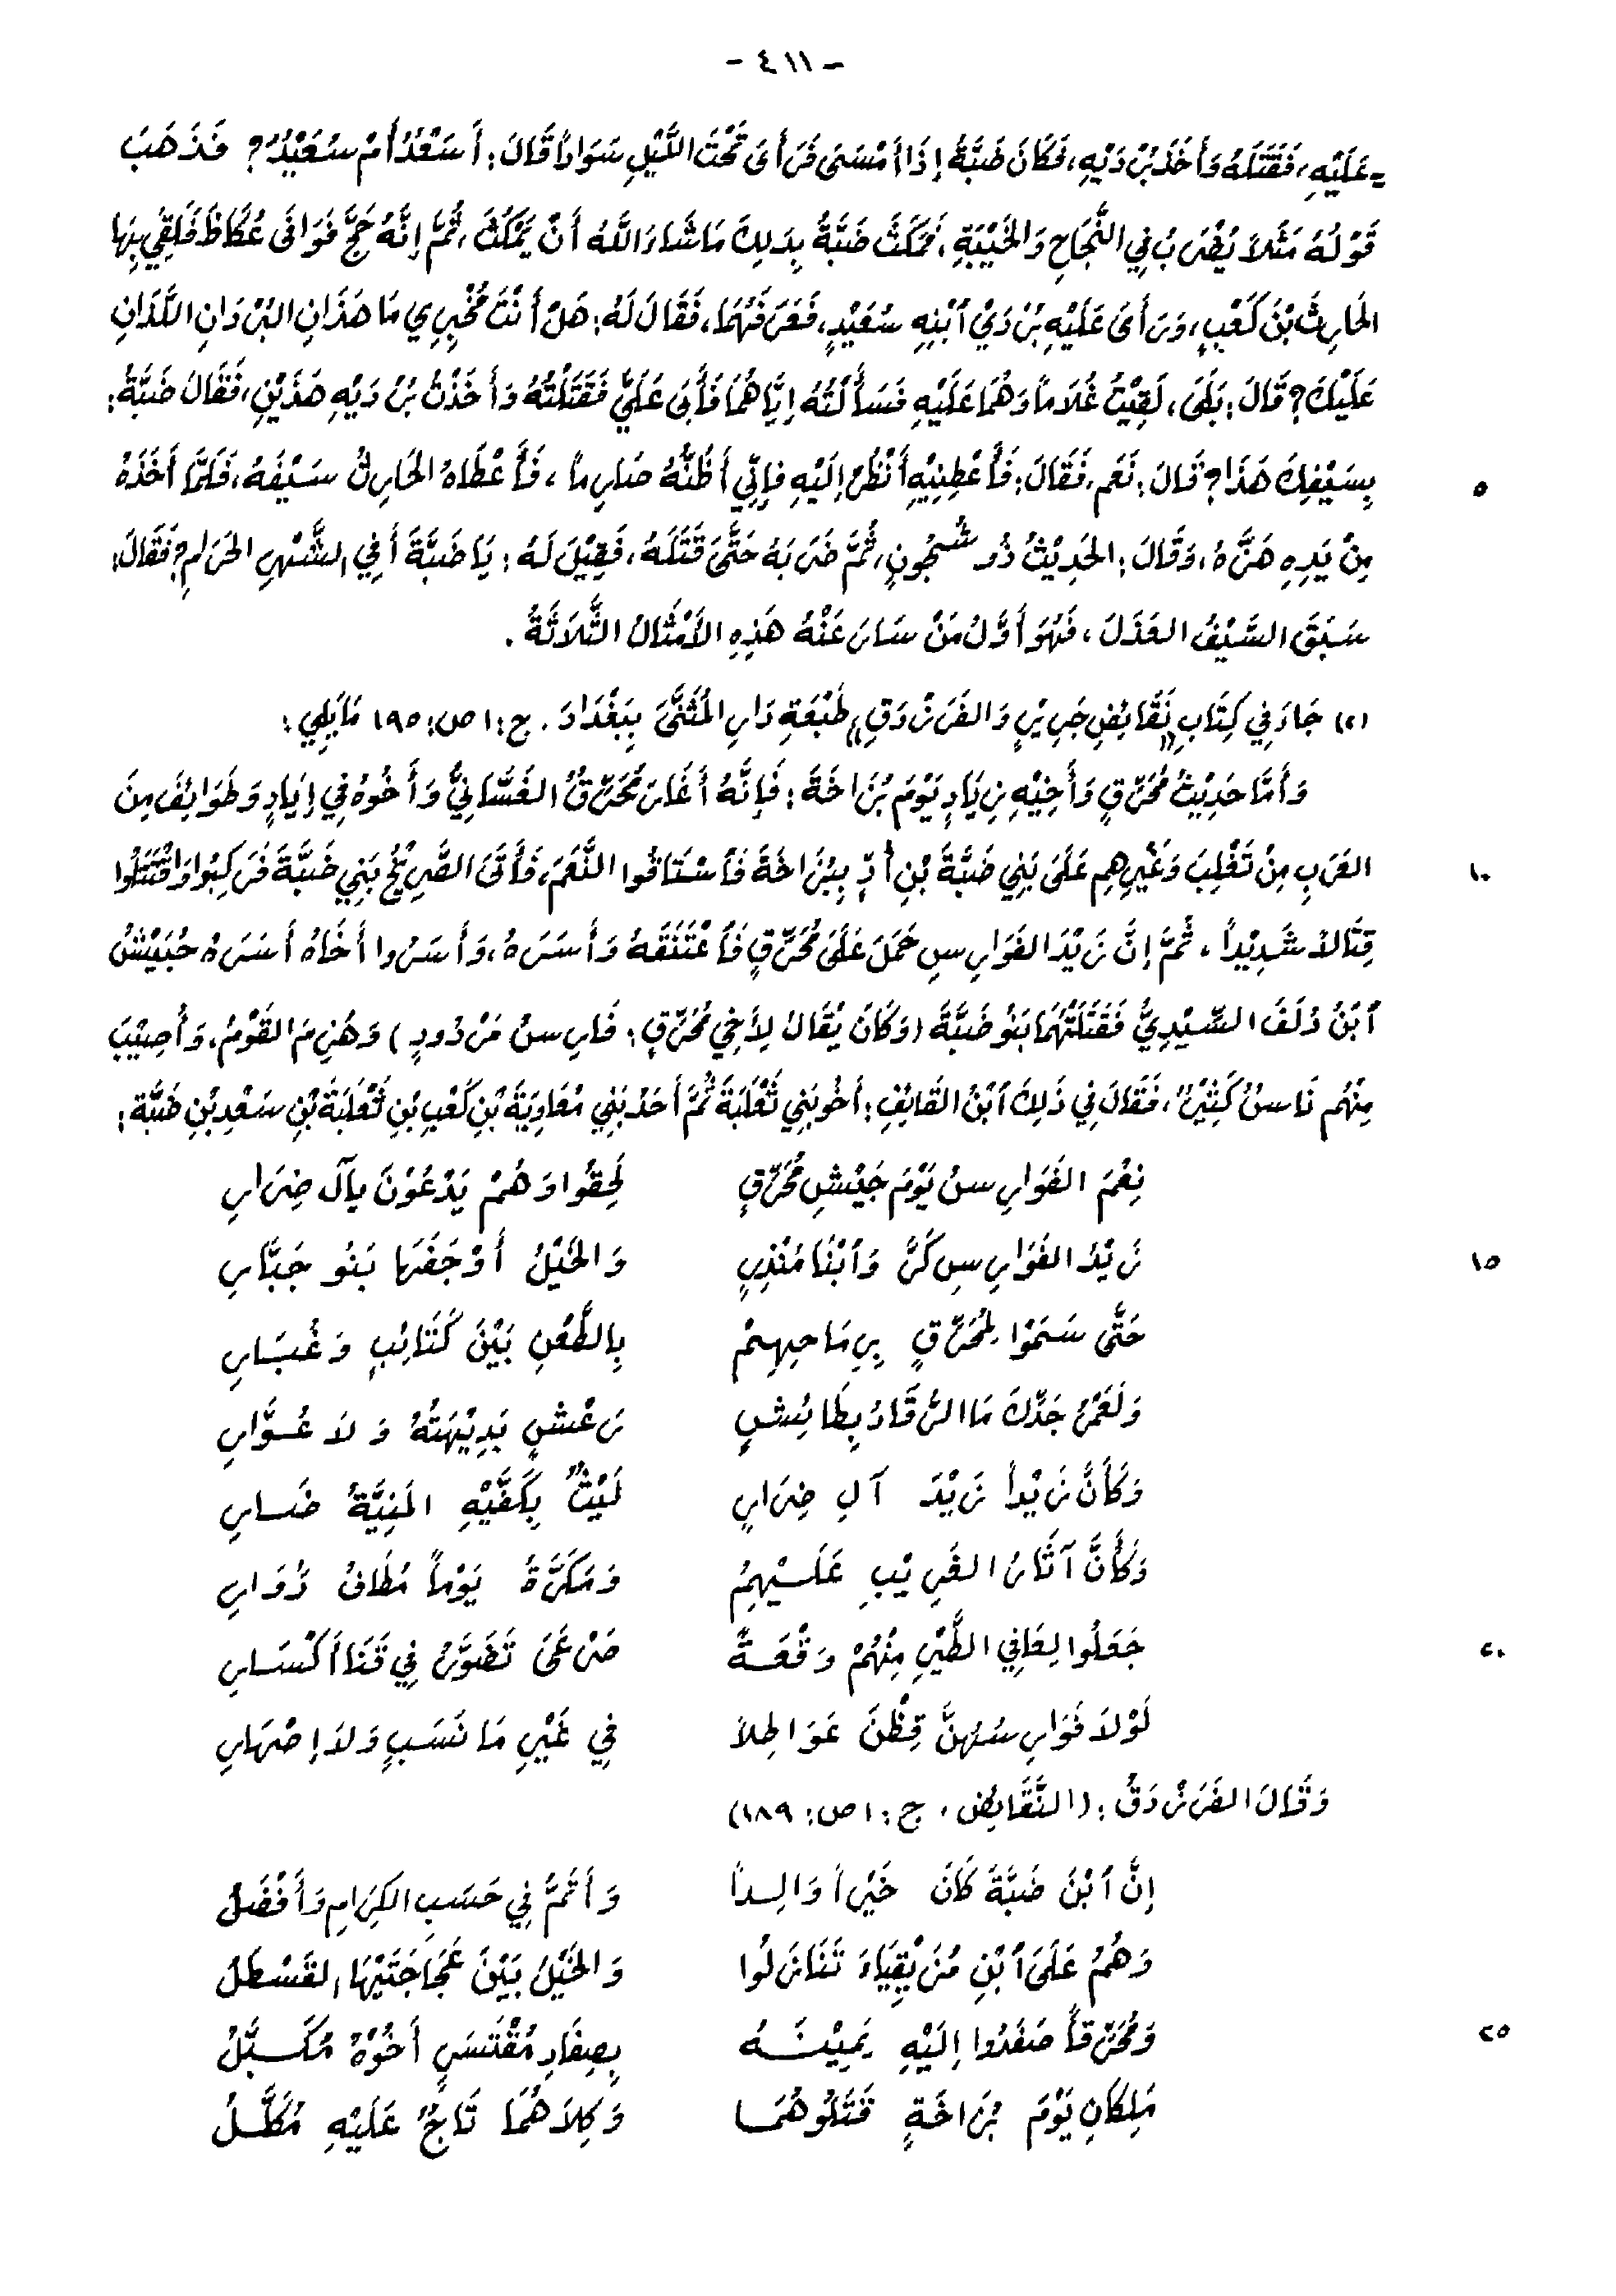 - ٤١١ -
= عَلَيْهِ، فَقَتَلَهُ وَأَخَذَ بُرْدَيْهِ، فَكَانَ ضَبَّةُ إِذَا أَمْسَى فَرَأَى تَحْتَ اللَّيْلِ سَوَادًا قَالَ: أَسَعْدُ أَمْ سُعَيْدٌ؟ فَذَهَبَ
قَوْلُهُ مَثَلاً يُضْرَبُ فِي النَّجَاحِ وَالخَيْبَةِ، فَمَكَثَ ضَبَّةُ بِذَلِكَ مَا شَاءَ اللَّهُ أَنْ يَمْكُثَ، ثُمَّ إِنَّهُ حَجَّ فَوَافَى عُكَاظَ فَلَقِيَ بِهَا
الحَارِثَ بْنَ كَعْبٍ، وَرَأَى عَلَيْهِ بُرْدَيْ ٱبْنِهِ سُعَيْدٍ، فَعَرَفَهُمَا، فَقَالَ لَهُ: هَلْ أَنْتَ مُخْبِرِي مَا هَذَانِ البُرْدَانِ اللَّذَانِ
عَلَيْكَ؟ قَالَ: بَلَى، لَقِيْتُ غُلَاماً وَهُمَا عَلَيْهِ فَسَأَلْتُهُ إِيَّاهُمَا فَأَبَى عَلَيَّ فَقَتَلْتُهُ وَأَخَذْتُ بُرْدَيْهِ هَذَيْنِ، فَقَالَ ضَبَّةُ:
بِسَيْفِكَ هَذَا؟ قَالَ: نَعَم، فَقَالَ: فَأَعْطِنِيْهِ أَنْظُرْ إِلَيْهِ فَإِنِّي أَظُنُّهُ صَارِماً، فَأَعْطَاهُ الحَارِثُ سَيْفَهُ، فَلَمَّا أَخَذَهُ ٥
مِنْ يَدِهِ هَزَّهُ، وَقَالَ: الحَدِيْثُ ذُو شُجُونٍ، ثُمَّ ضَرَبَهُ حَتَّى قَتَلَهُ، فَقِيْلَ لَهُ: يَا ضَبَّةَ أَفِي الشَّهْرِ الحَرَامِ؟ فَقَالَ:
سَبَقَ السَّيْفُ العَذَلَ، فَهُوَ أَوَّلُ مَنْ سَارَ عَنْهُ هَذِهِ الأَمْثَالُ الثَّلَاثَةُ.
(٢) جَاءَ فِي كِتَابِ «نَقَائِضِ جَرِيْرٍ وَالفَرَزْدَقِ» طَبْعَةِ دَارِ المُثَنَّى بِبَغْدَادَ. ج: ١ ص: ١٩٥ مَا يَلِي:
وَأَمَّا حَدِيْثُ مُحَرِّقٍ وَأَخِيْهِ زِيَادٍ يَوْمَ بُزَاخَةَ: فَإِنَّهُ أَغَارَ مُحَرِّقٌ الغَسَّانِيُّ وَأَخُوهُ فِي إِيَادٍ وَطَوَائِفَ مِنَ
العَرَبِ مِنْ تَغْلِبَ وَغَيْرِهِم عَلَى بَنِي ضَبَّةَ بْنِ أُدٍّ بِبُزَاخَةَ فَٱسْتَاقُوا النَّعَمَ، فَأَتَى الصَّرِيْخُ بَنِي ضَبَّةَ فَرَكِبُوا وَاقْتَتَلُوا ١٠
قِتَالاً شَدِيْداً، ثُمَّ إِنَّ زَيْدَ الفَوَارِسِ حَمَلَ عَلَى مُحَرِّقٍ فَٱعْتَنَقَهُ وَأَسَرَهُ، وَأَسَرُوا أَخَاهُ أَسَرَهُ حُبَيْشُ
ٱبْنُ دُلَفَ السِّيْدِيُّ فَقَتَلَتْهُمَا بَنُو ضَبَّةَ (وَكَانَ يُقَالُ لِأَخِي مُحَرِّقٍ: فَارِسُ مَرْدُودٍ) وَهُزِمَ القَوْمُ، وَأُصِيْبَ
مِنْهُم نَاسٌ كَثِيْرٌ، فَقَالَ فِي ذَلِكَ ٱبْنُ القَائِفِ: أَخُو بَنِي ثَعْلَبَةَ ثُمَّ أَحَدُ بَنِي مُعَاوِيَةَ بْنِ كَعْبِ بْنِ ثَعْلَبَةَ بْنِ سَعْدِ بْنِ ضَبَّةَ:
نِعْمَ الفَوَارِسُ يَوْمَ جَيْشِ مُحَرِّقٍ لَحِقُوا وَهُمْ يَدْعُوْنَ يآلَ ضِرَارِ
زَيْدُ الفَوَارِسِ كَرَّ وَٱبْنَا مُنْذِرٍ وَالخَيْلُ أَوْجَفَهَا بَنُو جَبَّارِ ١٥
حَتَّى سَمَوْا لِمُحَرِّقٍ بِرِمَاحِهِمْ بِالطَّعْنِ بَيْنَ كَتَائِبٍ وَغُبَارِ
وَلَعَمْرُ جَدِّكَ مَا الرُّقَادُ بِطَائِشٍ رَعْشٍ بَدِيْهَتُهُ وَلَا عُوَّارِ
وَكَأَنَّ زَيْداً زَيْدَ آلِ ضِرَارٍ لَيْثٌ بِكَفَّيْهِ المَنِيَّةُ ضَارِ
وَكَأَنَّ آثَارَ الغَرِيْبِ عَلَيْهِمُ وَمَكَرَّهُ يَوْماً مُطَافُ دُوَارِ
جَعَلُوا لِعَافِي الطَّيْرِ مِنْهُمْ وَقْعَةً صَرْعَى تَضَوَّرُ فِي قَنَا أَكْسَارِ ٢٠
لَوْلَا فَوَارِسُهُنَّ قِظْنَ عَوَاطِلاً فِي غَيْرِ مَا نَسَبٍ وَلَا إِصْهَارِ
وَقَالَ الفَرَزْدَقُ: (النَّقَائِض، ج: ١ ص: ١٨٩)
إِنَّ ٱبْنَ ضَبَّةَ كَانَ خَيْراً وَالِداً وَأَتَمَّ فِي حَسَبِ الكِرَامِ وَأَفْضَلُ
وَهُمُ عَلَى ٱبْنِ مُزَيْقِيَاءَ تَنَازَلُوا وَالخَيْلُ بَيْنَ عَجَاجَتَيْهَا القَسْطَلُ
وَمُحَرِّقاً صَفَدُوا إِلَيْهِ يَمِيْنَهُ بِصِفَادِ مُقْتَسَرٍ أَخُوْهُ مُكَبَّلُ ٢٥
مَلِكَانِ يَوْمَ بُزَاخَةٍ قَتَلُوهُمَا وَكِلَاهُمَا تَاجٌ عَلَيْهِ مُكَلَّلُ